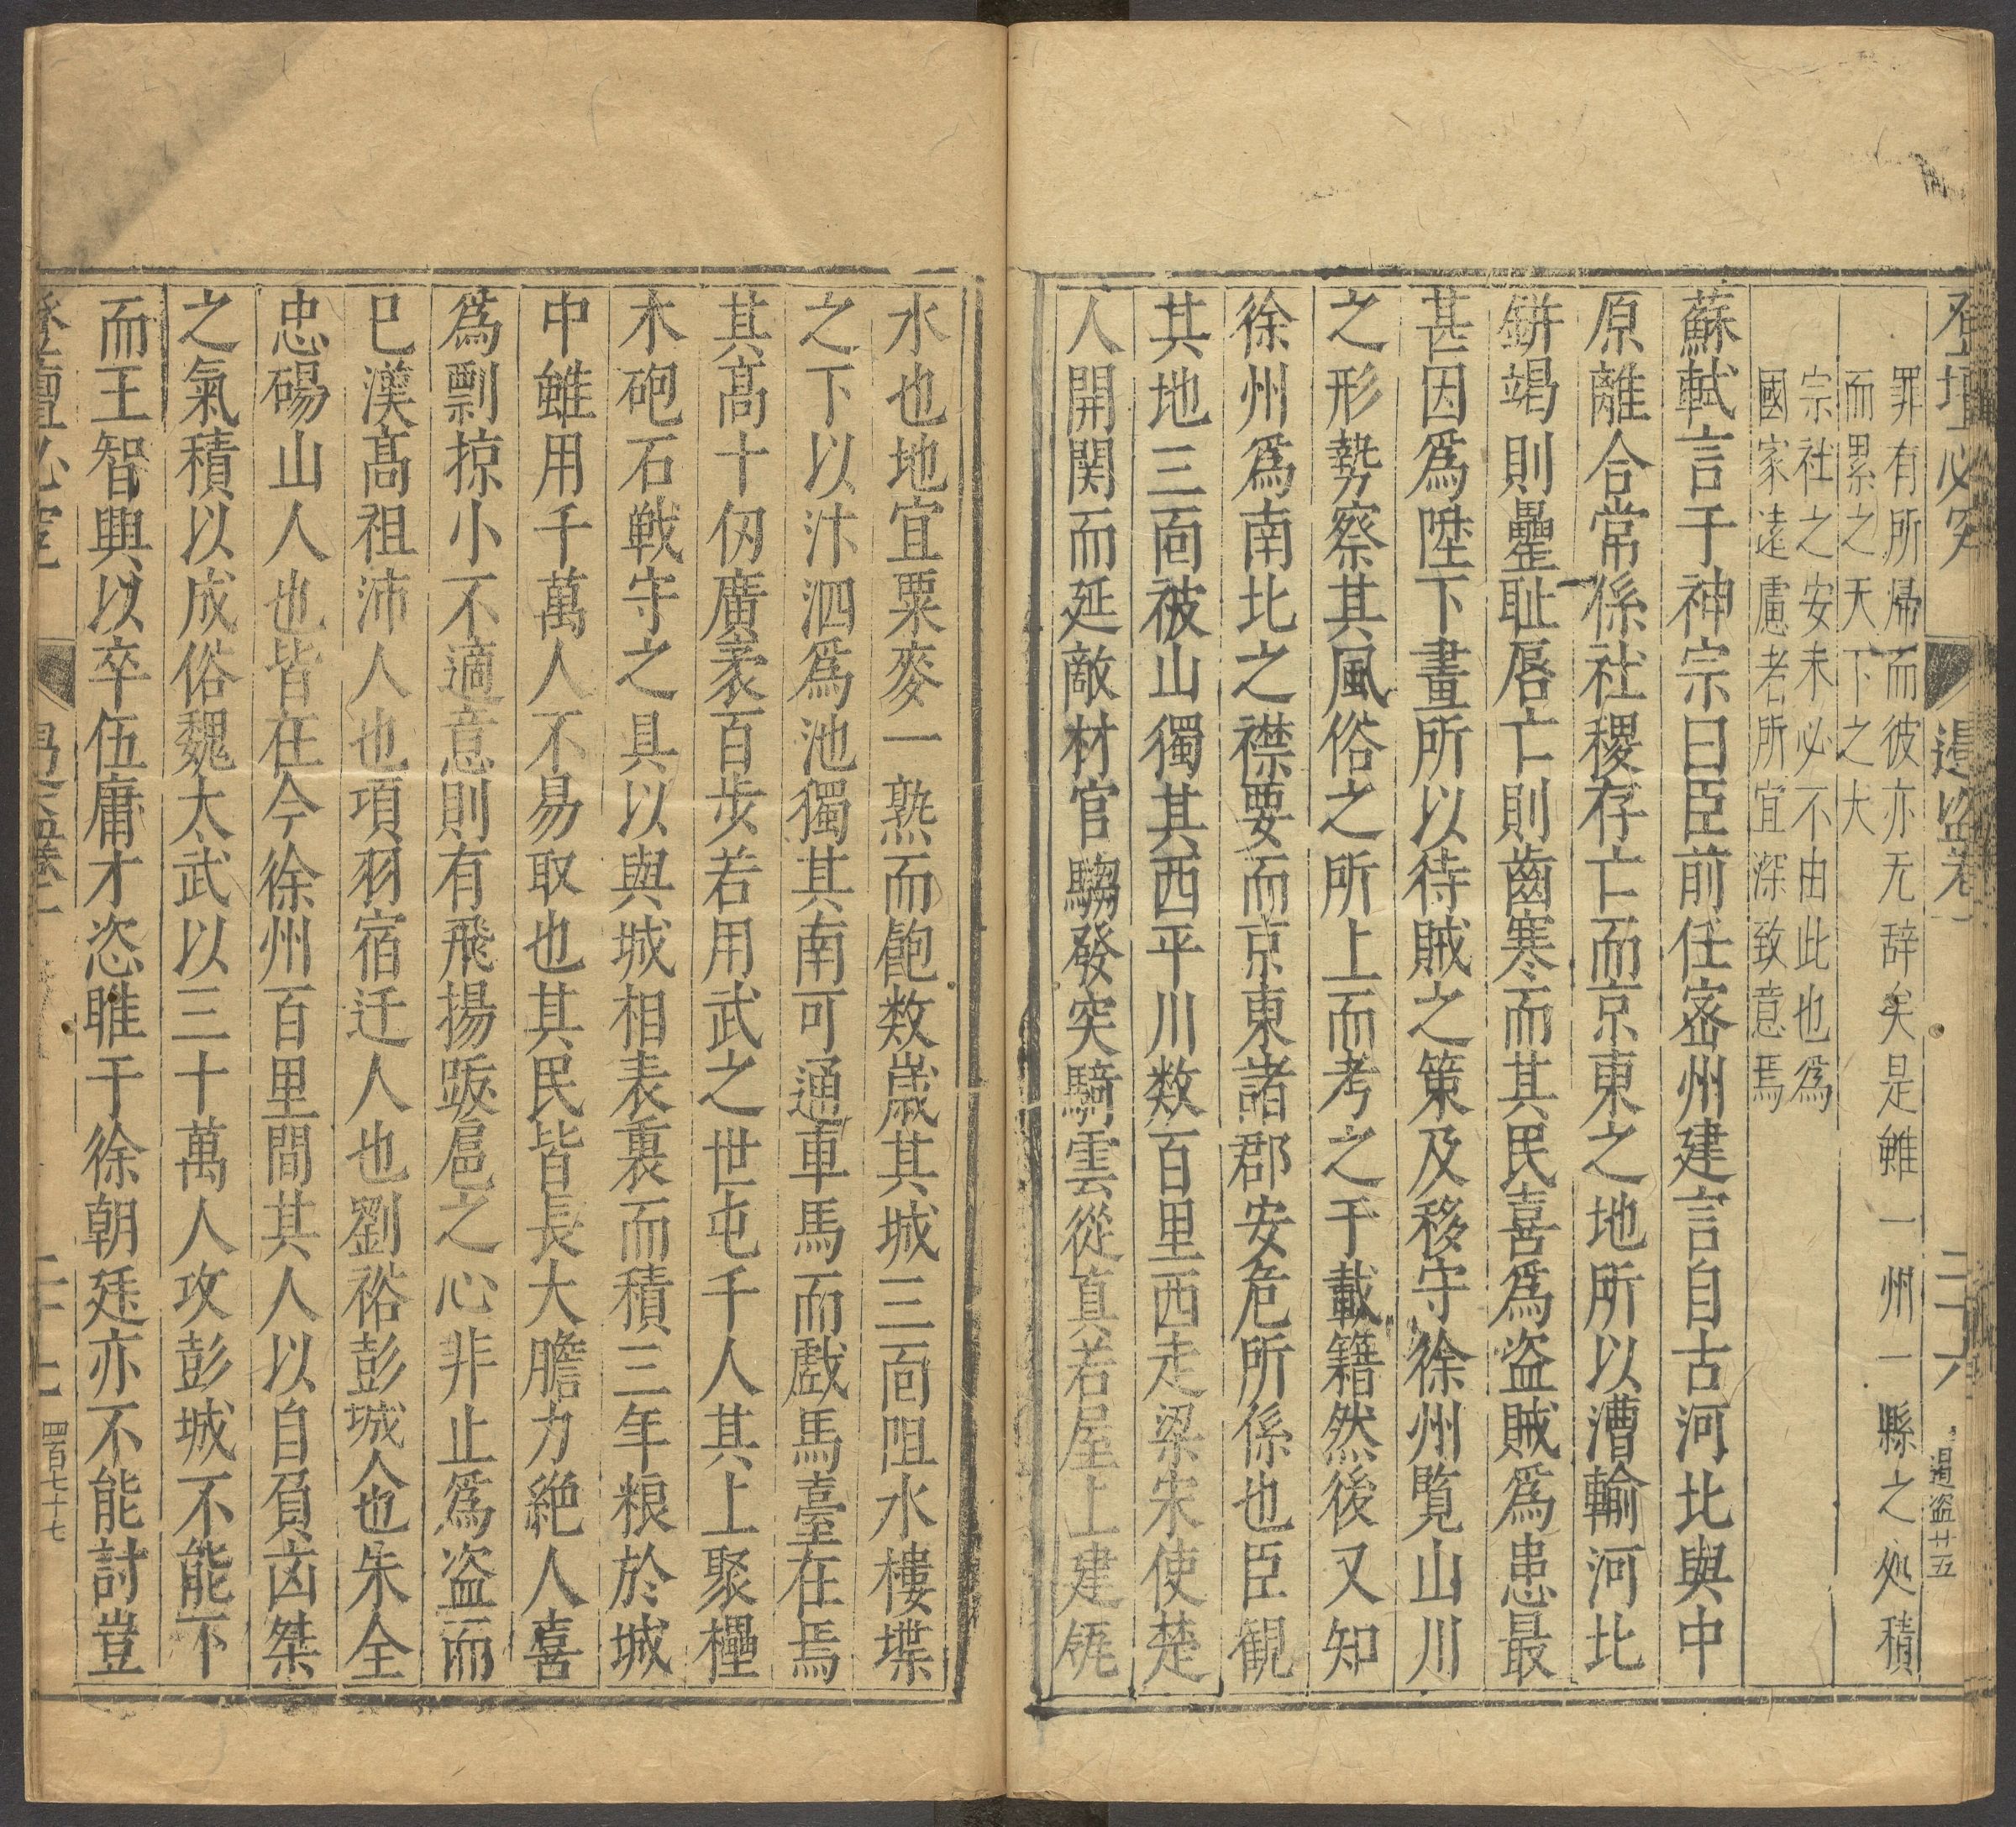 登壇必究
遏盜卷一
二十六
遏盜廿五
罪有所歸而彼亦无辞矣是雖一州一縣之処積
而累之天下之大
宗社之安未必不由此也爲
國家遠慮者所宜深致意焉
蘇軾言于神宗曰臣前任宻州建言自古河北與中
原離合常係社稷存亡而京東之地所以漕輸河北
缾竭則罍耻唇亡則齒寒而其民喜爲盗賊爲患最
甚因爲陛下畫所以待賊之策及移守徐州覧山川
之形勢察其風俗之所上而考之于載籍然後又知
徐州爲南北之襟要而京東諸郡安危所係也臣観
其地三面被山獨其西平川数百里西走梁宋使楚
人開関而延敵材官騶發突騎雲從真若屋上建瓴
水也地宜粟麥一熟而飽数歳其城三面阻水樓堞
之下以汴泗爲池獨其南可通車馬而戲馬臺在焉
其髙十仭廣袤百步若用武之世屯千人其上聚檑
木砲石戰守之具以與城相表裏而積三年粮於城
中雖用千萬人不易取也其民皆長大膽力絶人喜
爲剽掠小不適意則有飛揚跋扈之心非止爲盗而
巳漢髙祖沛人也項羽宿迁人也劉裕彭城人也朱全
忠碭山人也皆在今徐州百里間其人以自負凶桀
之氣積以成俗魏太武以三十萬人攻彭城不能下
而王智興以卒伍庸才恣睢于徐朝廷亦不能討豈
登壇必究
二十七
四百七十七